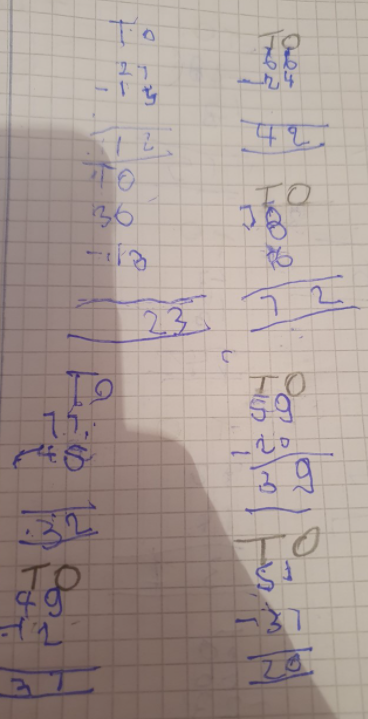 TO
27
-15
12
TO
36
-13
23
TO
77
-45
32
TO
49
-12
37
TO
66
-24
42
TO
78
6
72
TO
59
-20
39
TO
51
-31
20